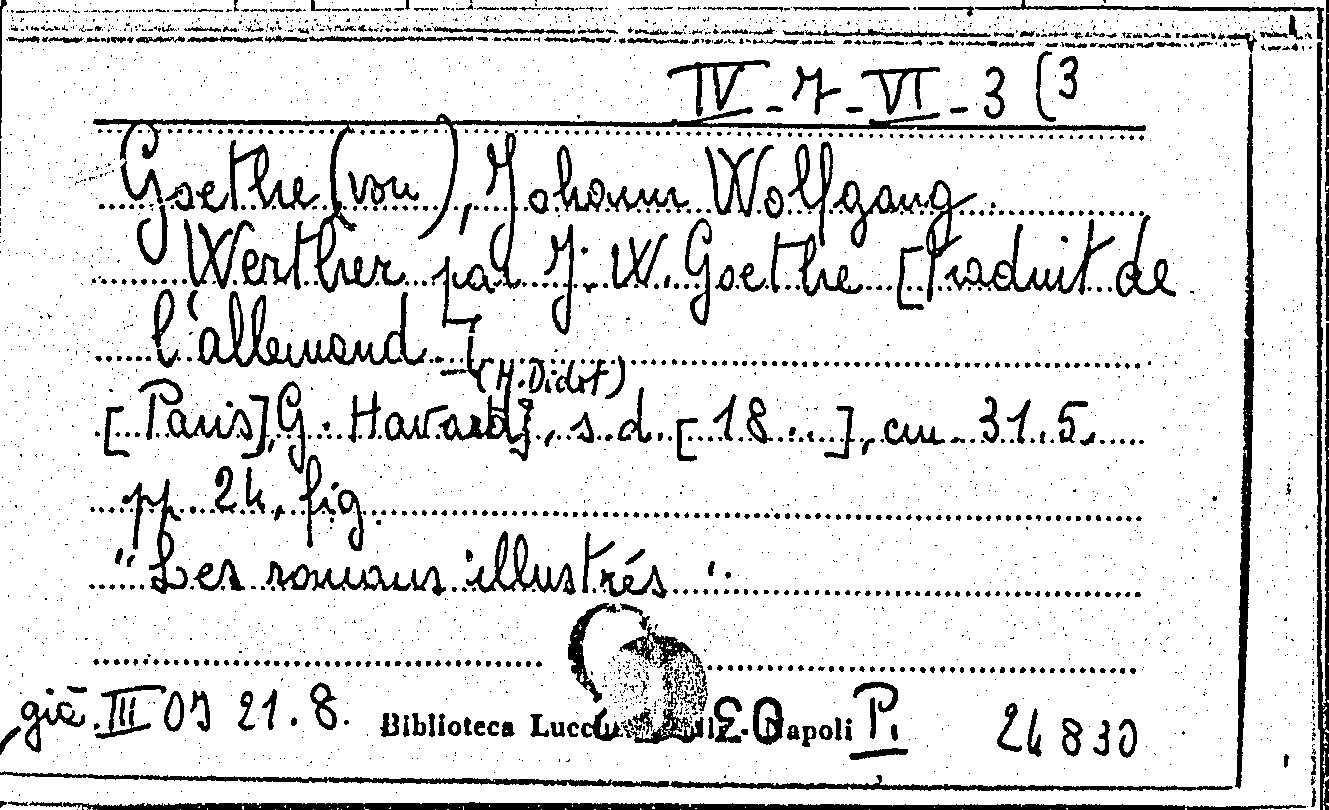 IV - 7 - VI - 3 (3
Goethe (von), Johann Wolfgang.
Werther par J. W. Goethe [Traduit de
l'allemand]
(H. Didot)
[Paris], G. Havard], s. d. [18...], cm. 31.5,
pp. 24, fig.
"Les romans illustrés".
già III 21.8. Biblioteca Napoli P1 24830